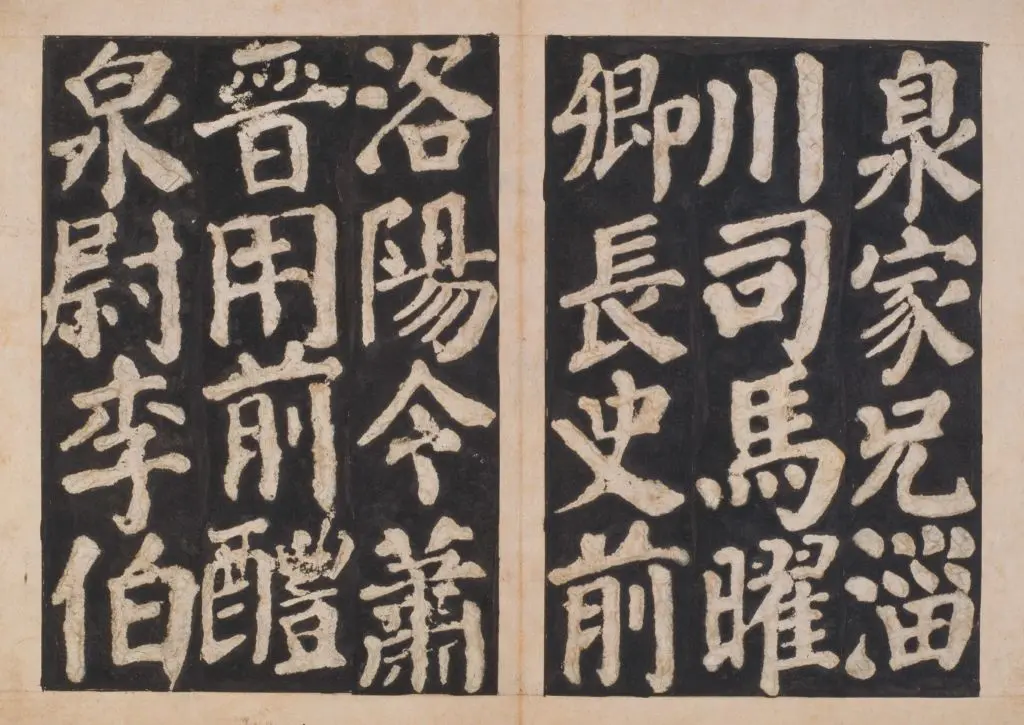 泉家兄淄
川司馬曜
卿長史前
洛陽令蕭
晉用前醴
泉尉李伯